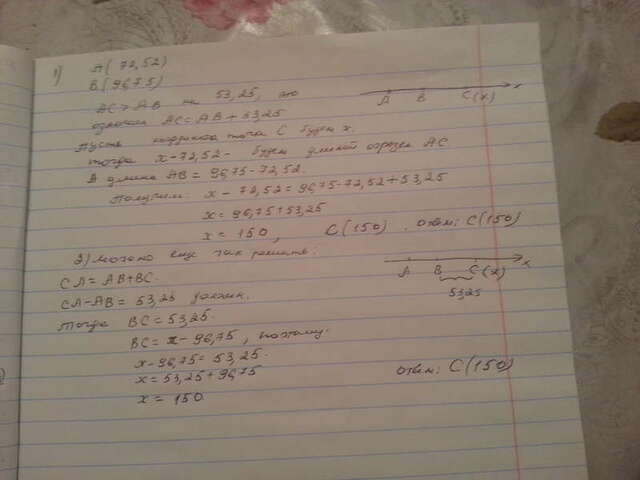 1) А(72,52)
В(96,75)
АС > АВ на 53,25, то
означает АС = АВ + 53,25
А В С(х) х
Пусть координата точки С будет х.
тогда х - 72,52 - будет длиной отрезка АС
А длина АВ = 96,75 - 72,52.
Получим: х - 72,52 = 96,75 - 72,52 + 53,25
х = 96,75 + 53,25
х = 150, С(150). Ответ: С(150)
2) можно еще так решить:
СА = АВ + ВС.
А В С(х) х
53,25
СА - АВ = 53,25
Тогда ВС = 53,25.
ВС = х - 96,75, поэтому:
х - 96,75 = 53,25.
х = 53,25 + 96,75
х = 150
Ответ: С(150)